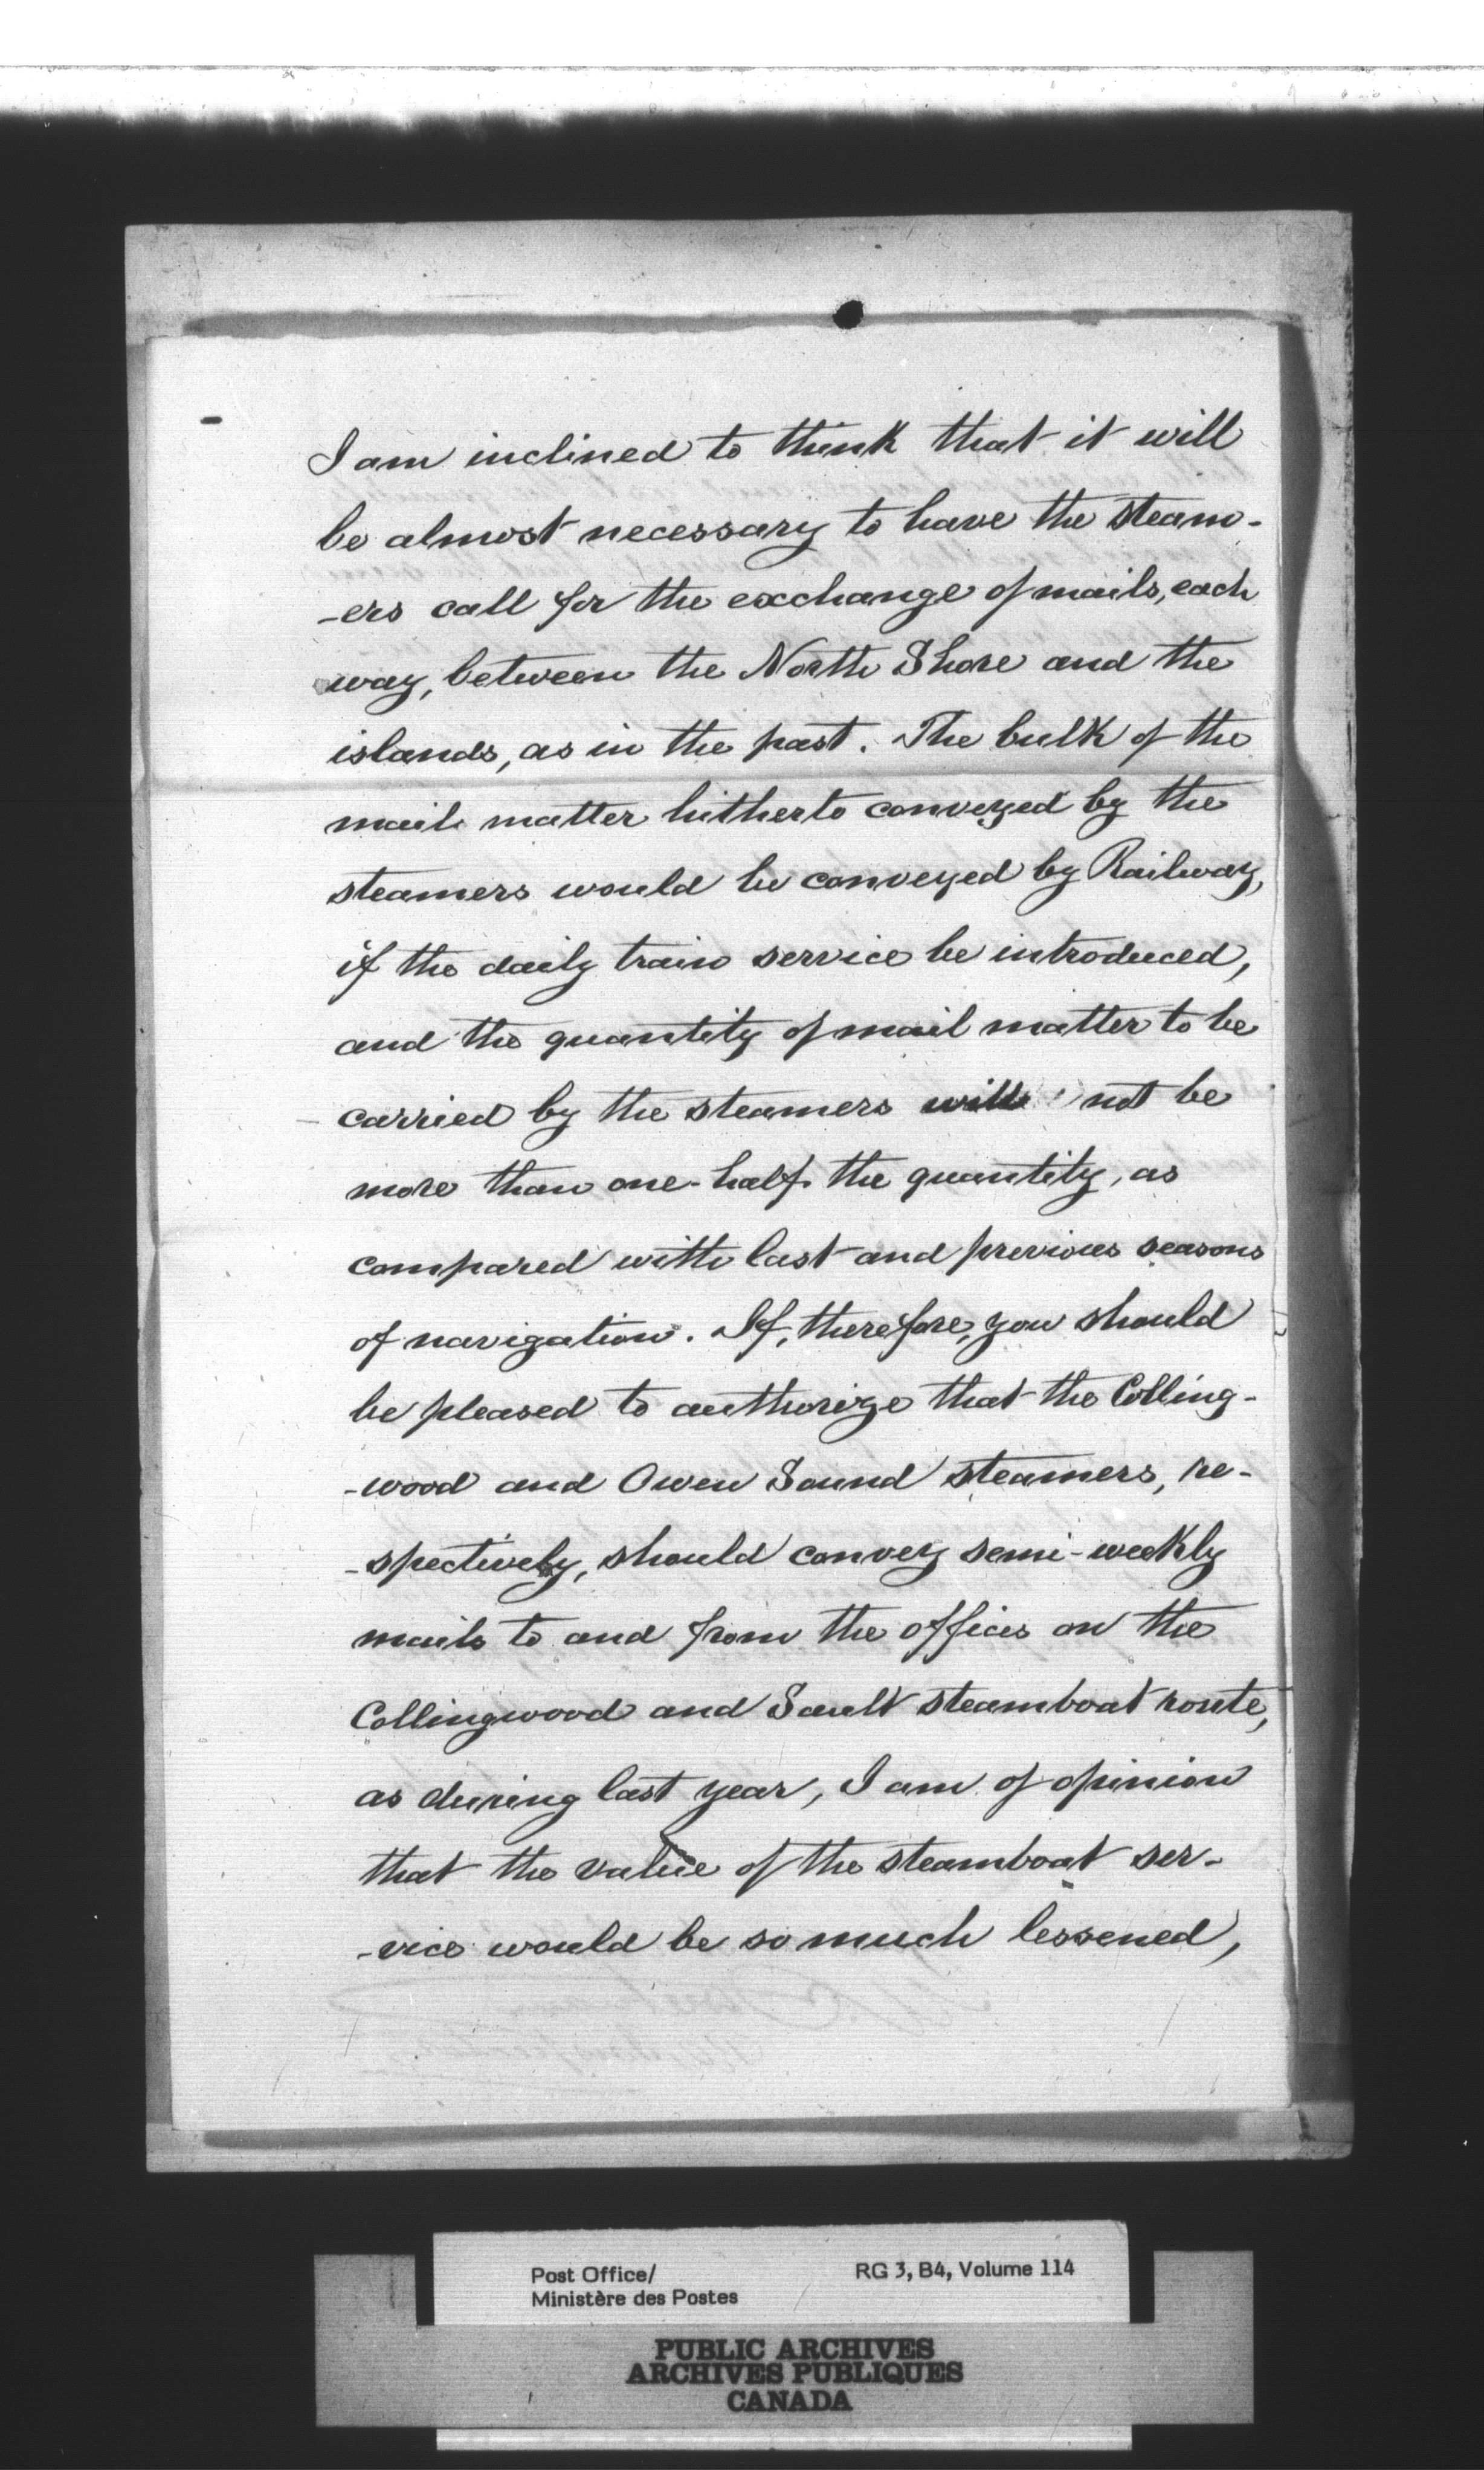 I am inclined to think that it will
be almost necessary to have the steam-
-ers call for the exchange of mails, each
way, between the North Shore and the
islands, as in the past. The bulk of the
mail matter hitherto conveyed by the
steamers would be conveyed by Railway,
if the daily train service be introduced,
and the quantity of mail matter to be
carried by the steamers will not be
more than one-half the quantity, as
compared with last and previous seasons
of navigation. If, therefore, you should
be pleased to authorize that the Colling-
-wood and Owen Sound steamers, re-
-spectively, should convey semi-weekly
mails to and from the offices on the
Collingwood and Sault steamboat route,
as during last year, I am of opinion
that the value of the steamboat ser-
-vice would be so much lessened,
Post Office/
Ministère des Postes
RG 3, B4, Volume 114
PUBLIC ARCHIVES
ARCHIVES PUBLIQUES
CANADA